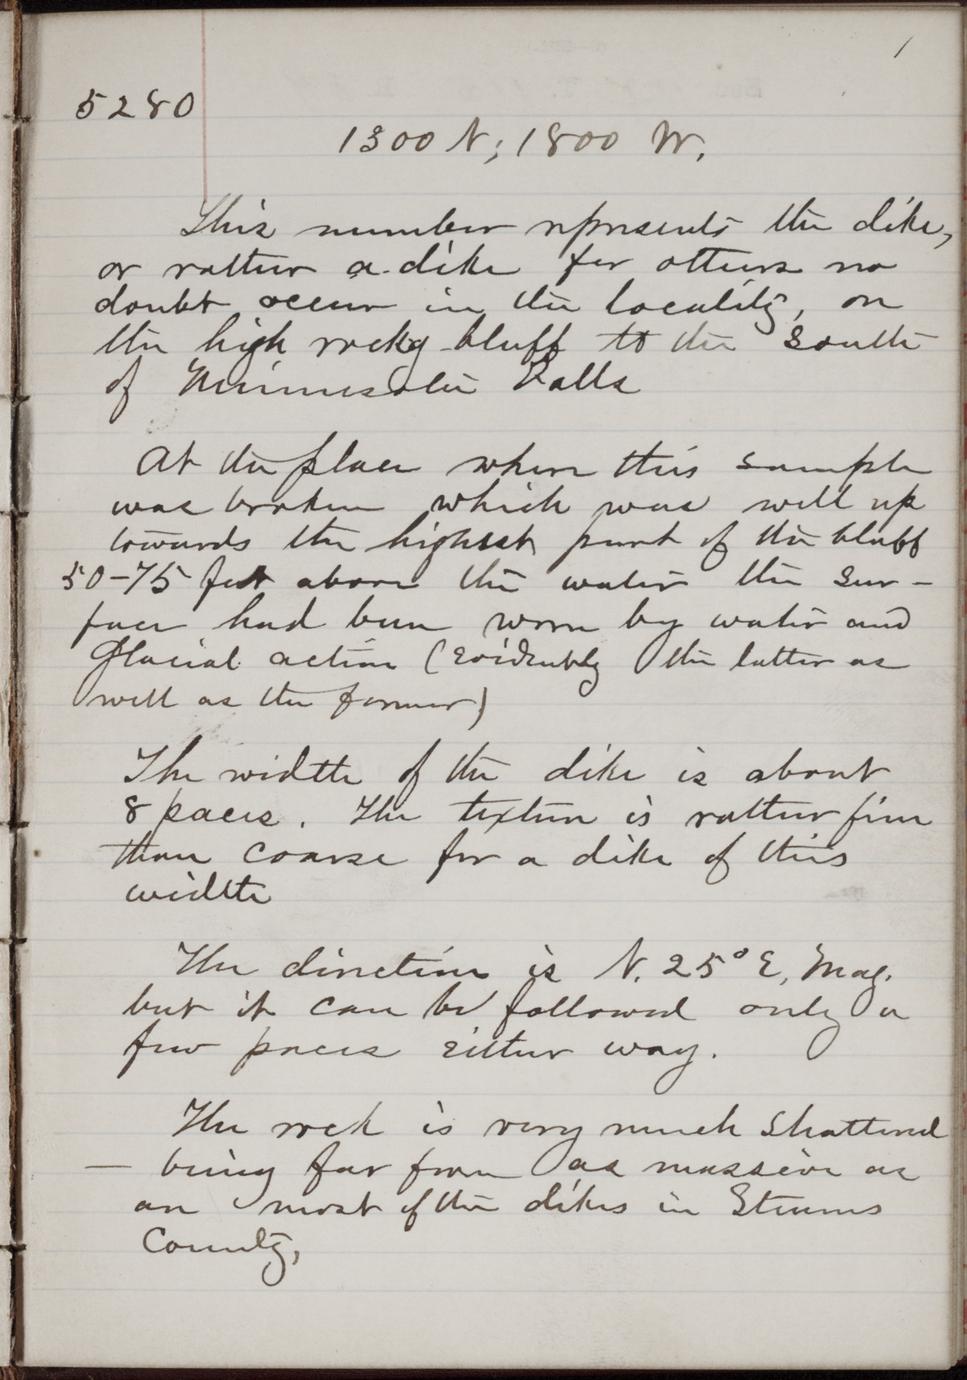 1
5280
1300 N; 1800 W.
This number represents the dike,
or rather a dike for others no
doubt occur in the locality, on
the high rocky bluff to the south
of Minnesota Falls
At the place where this sample
was broken which was well up
towards the highest part of the bluff
50-75 feet above the water the sur-
face had been worn by water and
glacial action (evidently the latter as
well as the former)
The width of the dike is about
8 paces. The texture is rather fine
than coarse for a dike of this
width
The direction is N. 25° E, Mag.
but it can be followed only a
few paces either way.
The rock is very much shattered
— being far from as massive as
are most of the dikes in Stearns
County,